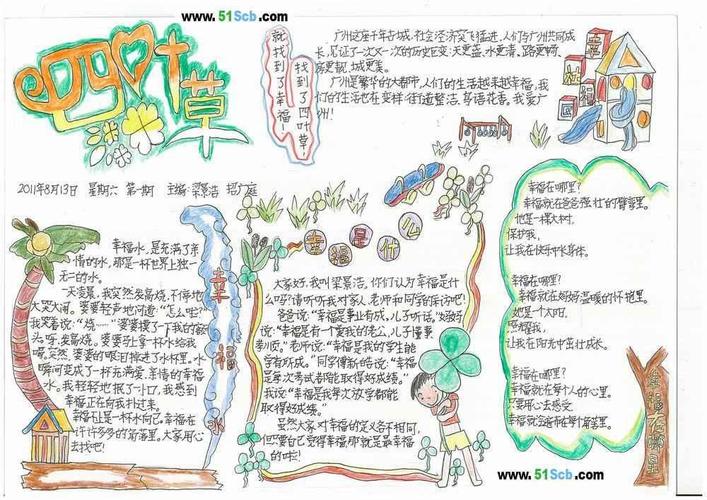 www.51Scb.com
四叶草
找到了四叶草！
就找到了幸福！
广州这座千年古城，社会经济突飞猛进，人们与广州共同成
长，见证了一次又一次的历史巨变：天更蓝、水更清、路更畅、
房更靓、城更美。
广州是繁华的大都市，人们的生活越来越幸福，我
们的生活也在变样：街道整洁、鸟语花香。我爱广
州！
幸福社区
2011年8月13日 星期六 第一期 主编：梁景浩 招广庭
幸福水
幸福水，是充满了亲
情的水，那是一杯世界上独一
无二的水。
一天凌晨，我突然发高烧，不停地
大哭大闹。婆婆轻声地问道：“怎么啦？”
我哭着说：“烧……”婆婆摸了一下我的额
头呀，发高烧。婆婆马上拿一杯水给我
喝。突然，婆婆的眼泪掉进了水杯里。水
瞬间变成了一杯充满爱、亲情的幸福
水。我轻轻地抿了一小口，我感到
幸福正在向我扑过来。
幸福也是一杯水而已。幸福在
许许多多的角落里。大家用心
去找吧！
幸福是什么
大家好，我叫梁景浩，你们认为幸福是什
么吗？请听听我对家人、老师和同学的采访吧！
爸爸说：“幸福是事业有成，儿子听话。”妈妈
说：“幸福是有个爱我的老公，儿子懂事
孝顺。”老师说：“幸福是我的学生能
学有所成。”同学傅新皓说：“幸福
是每次考试都能取得好成绩。”
我说：“幸福是我每次放学都能
取得好成绩。”
虽然大家对幸福的定义各不相同，
但只要自己觉得幸福，那就是最幸福
的啦！
幸福在哪里？
幸福就在爸爸强壮的臂弯里。
他是一棵大树，
保护我，
让我在快乐中长身体。
幸福在哪里？
幸福就在妈妈温暖的怀抱里。
她是一个太阳，
照耀我，
让我在阳光中茁壮成长。
幸福在哪里？
幸福就在每个人的心里。
只要用心去感受，
幸福就会落在每个角落里。
幸福在哪里
www.51Scb.com